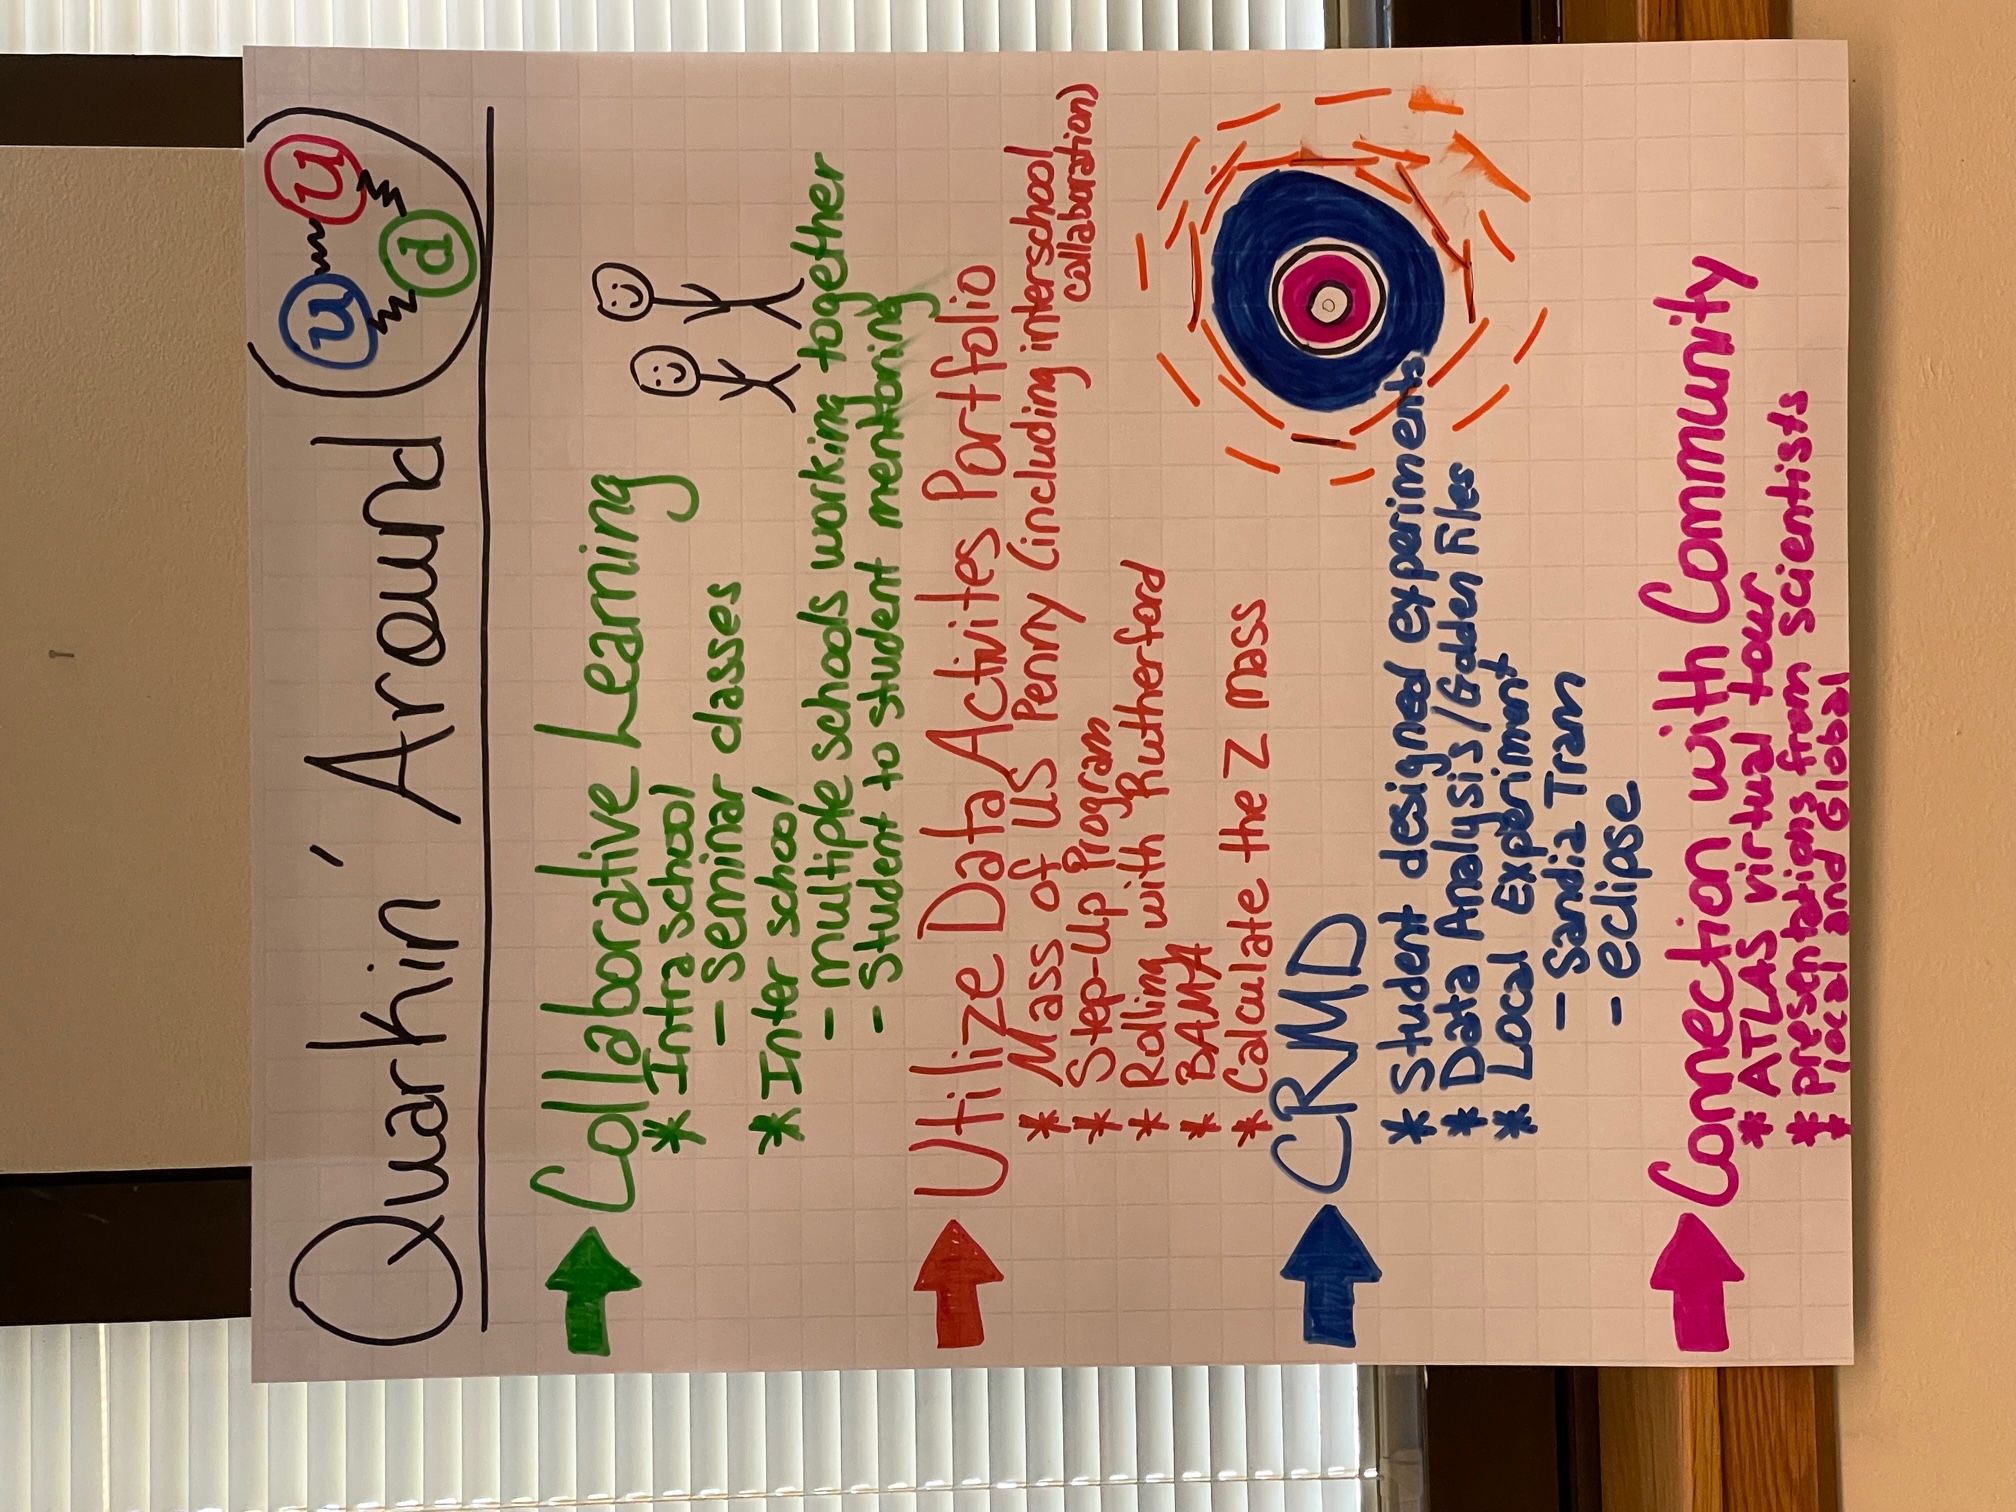 Quarkin' Around
u u
d
Collaborative Learning
* Intra school
- Seminar classes
* Inter school
- multiple schools working together
- student to student mentoring
Utilize Data Activites Portfolio
* Mass of US Penny (including interschool
collaboration)
* Step-Up Program
* Rolling with Rutherford
* BAMA
* Calculate the Z mass
CRMD
* Student designed experiments
* Data Analysis/Golden Files
* Local Experiment
- Sandia Tram
- eclipse
Connection with Community
* ATLAS virtual tour
* presentations from scientists
* local and Global